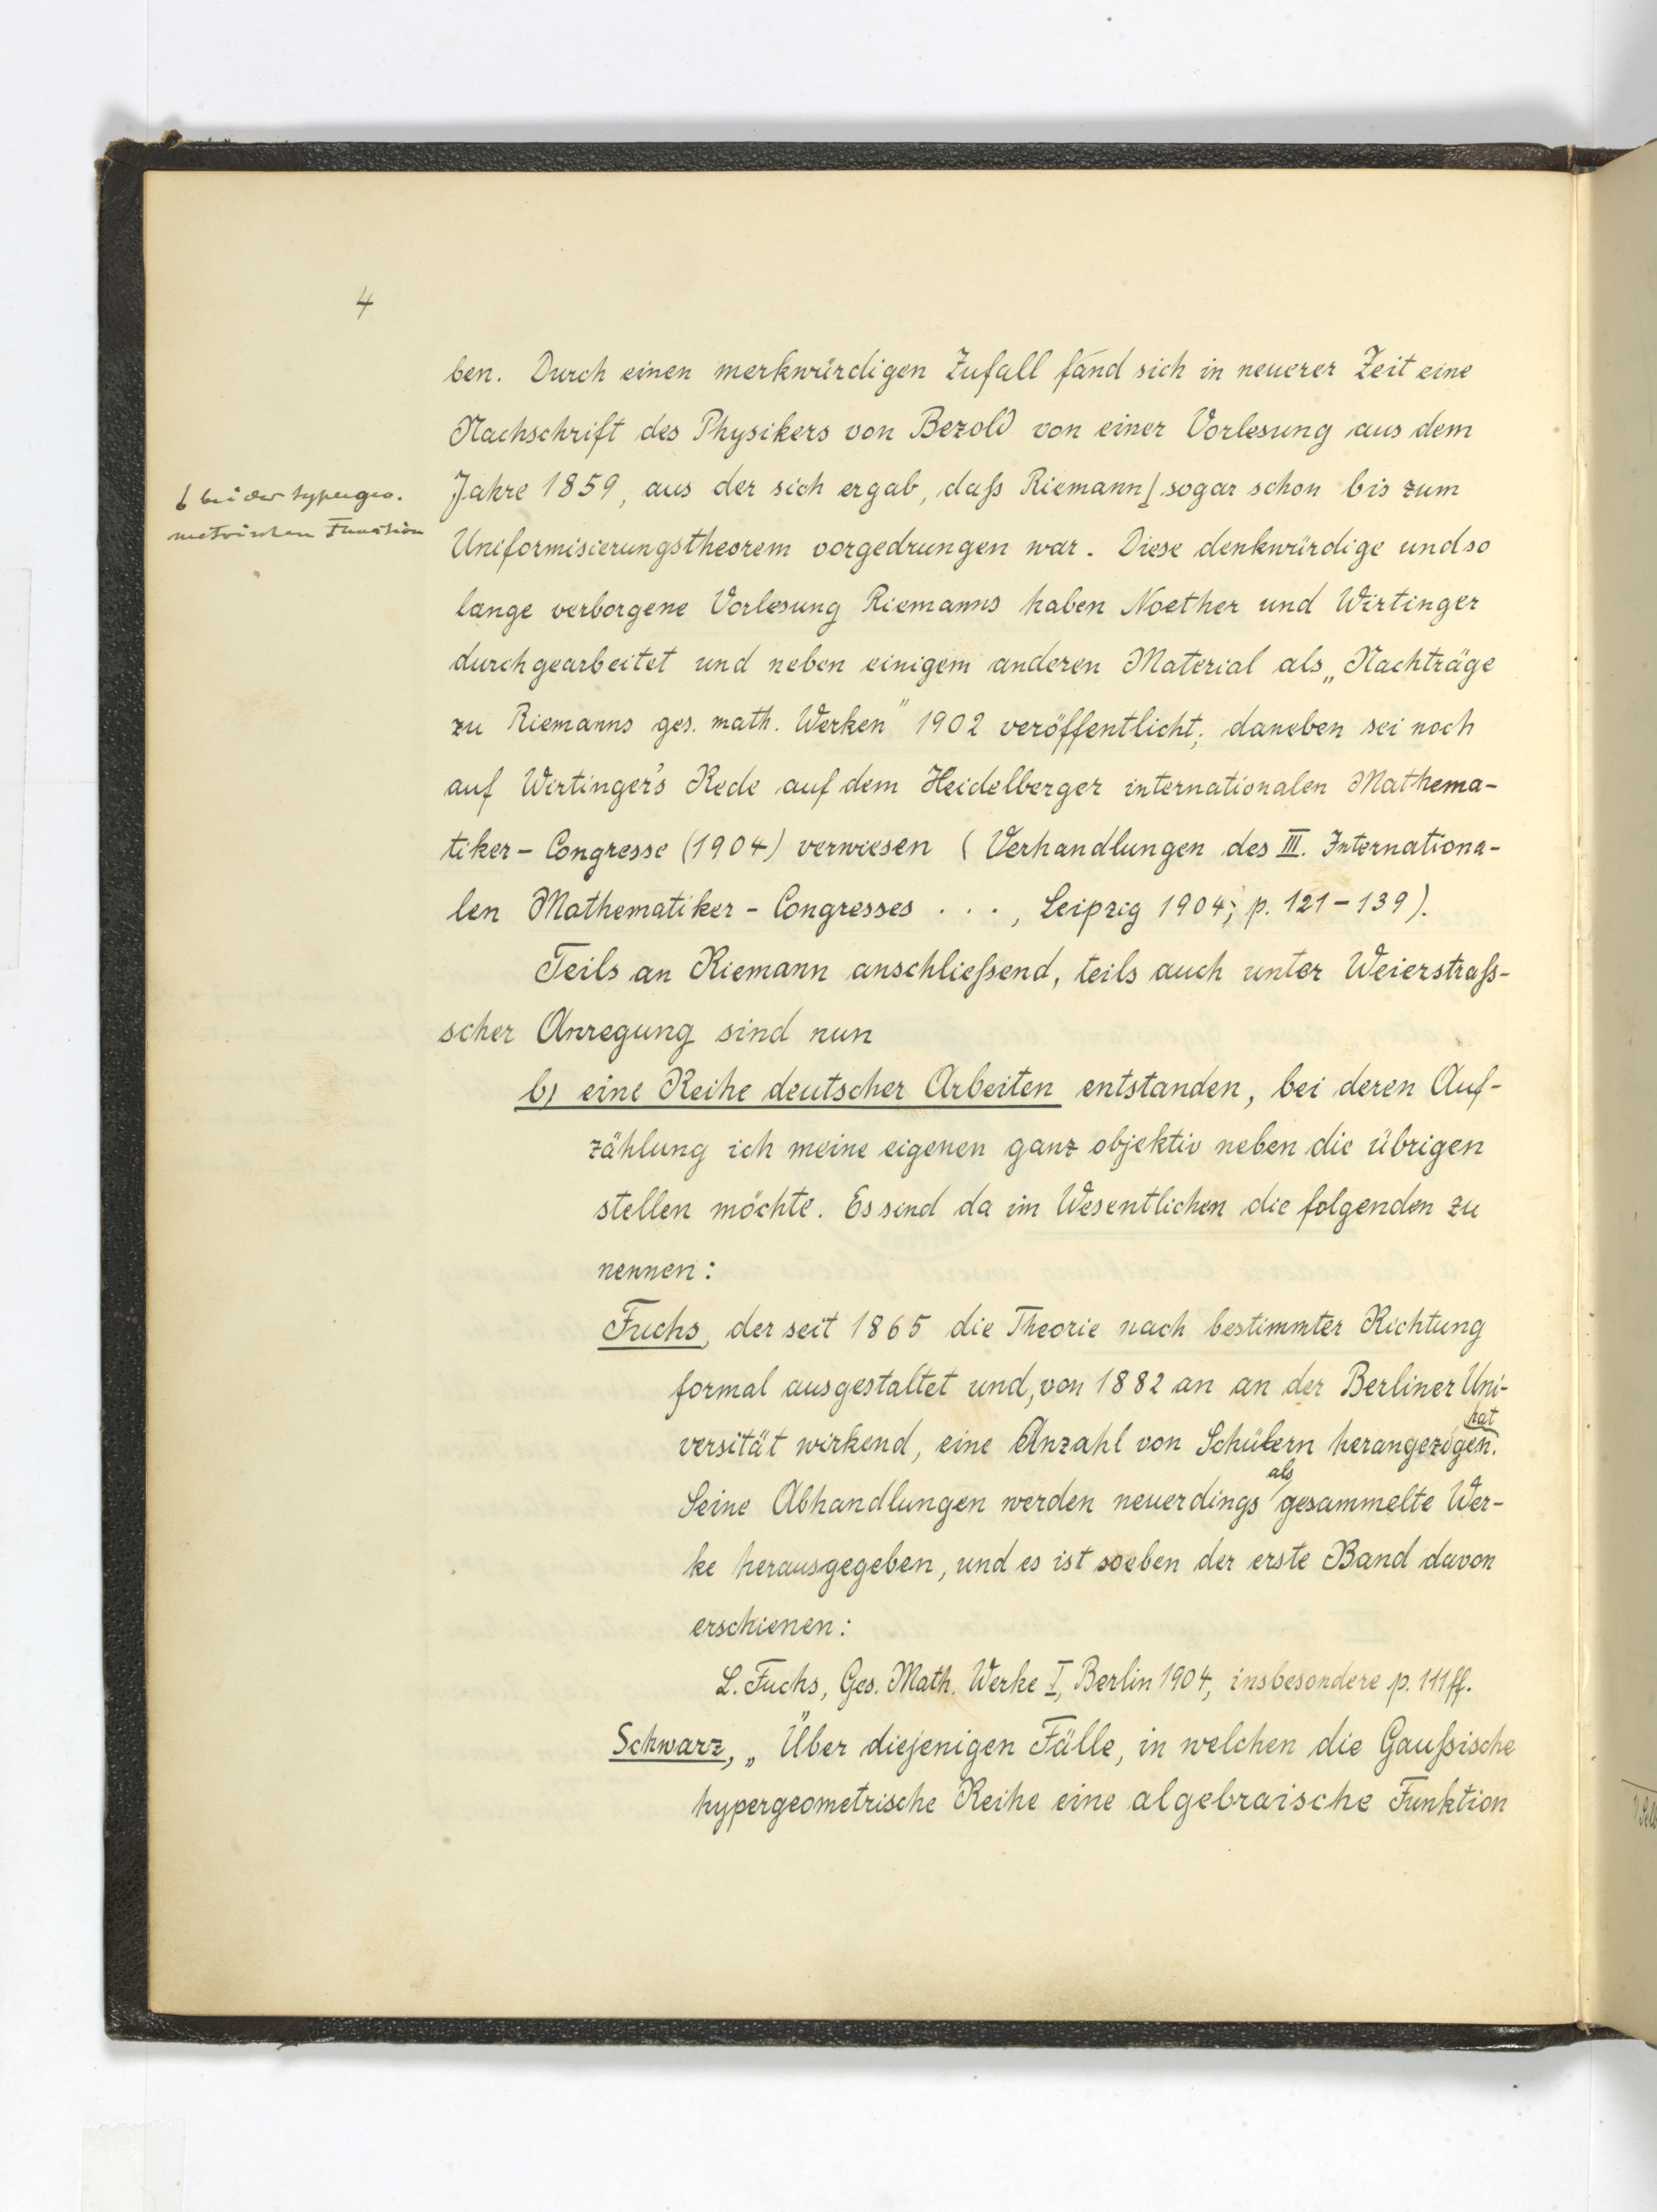 4
ben. Durch einen merkwürdigen Zufall fand sich in neuerer Zeit eine
Nachschrift des Physikers von Bezold von einer Vorlesung aus dem
Jahre 1859, aus der sich ergab, daß Riemann sogar schon bis zum
bei der hypergeo-
metrischen Funktion
Uniformisierungstheorem vorgedrungen war. Diese denkwürdige und so
lange verborgene Vorlesung Riemanns haben Noether und Wirtinger
durchgearbeitet und neben einigem anderen Material als „Nachträge
zu Riemanns ges. math. Werken" 1902 veröffentlicht; daneben sei noch
auf Wirtinger's Rede auf dem Heidelberger internationalen Mathema-
tiker-Congresse (1904) verwiesen (Verhandlungen des III. Internationa-
len Mathematiker-Congresses . . ., Leipzig 1904; p. 121-139).
Teils an Riemann anschließend, teils auch unter Weierstraß-
scher Anregung sind nun
b) eine Reihe deutscher Arbeiten entstanden, bei deren Auf-
zählung ich meine eigenen ganz objektiv neben die übrigen
stellen möchte. Es sind da im Wesentlichen die folgenden zu
nennen:
Fuchs, der seit 1865 die Theorie nach bestimmter Richtung
formal ausgestaltet und, von 1882 an an der Berliner Uni-
versität wirkend, eine Anzahl von Schülern herangezogen hat.
Seine Abhandlungen werden neuerdings als gesammelte Wer-
ke herausgegeben, und es ist soeben der erste Band davon
erschienen:
L. Fuchs, Ges. Math. Werke I, Berlin 1904, insbesondere p. 111 ff.
Schwarz, „Über diejenigen Fälle, in welchen die Gaußische
hypergeometrische Reihe eine algebraische Funktion